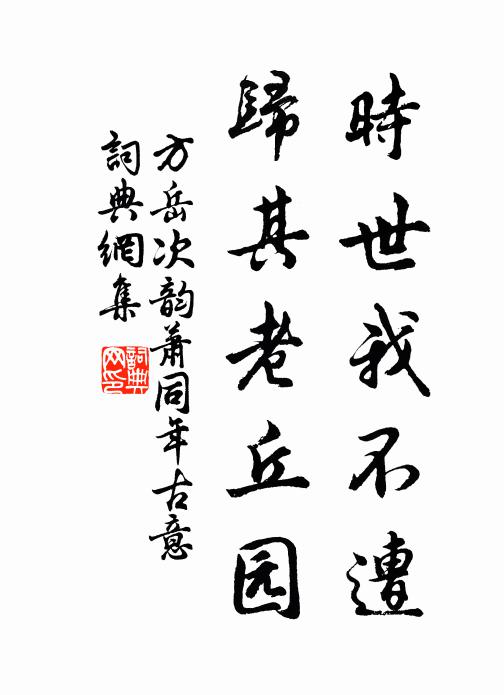 時世我不遭
歸其老丘园
方岳次韵萧同年古意
詞典網集
詞典网印